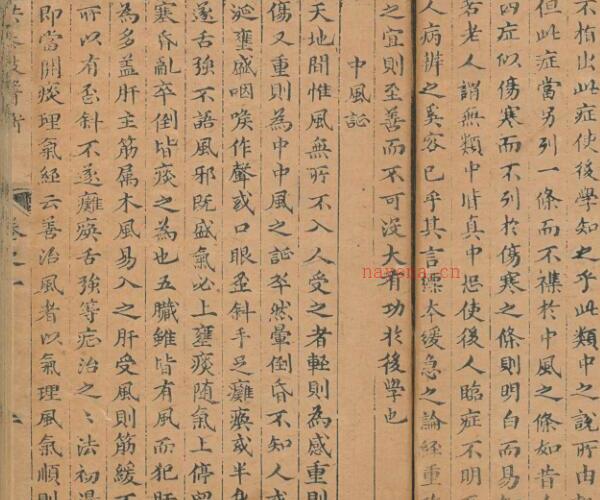 不指出此症使後學知之乎此類中之説所由
但此症當另列一條而不襍於中風之條如昔
四症似傷寒而不列於傷寒之條則明白而易
若老人謂無類中皆真中恐使後人臨症不明
人病辨之奚容已乎其言標本緩急之論經重
之宜則至善而不可沒大有功於後學也
中風証
天地間惟風無所不入人受之者輕則為感重則
傷又重則為中中風之証卒然暈倒昏不知人或
涎壅盛咽喉作聲或口眼歪斜手足癱瘓或半身
遂舌強不語風邪既盛氣必上壅痰随氣上停留
寒昏亂卒倒皆痰之為也五臟雖皆有風而犯肝
為多蓋肝主筋属木風易入之肝受風則筋緩不
所以有歪斜不遂癱瘓舌強等症治之〻法初得
即當開痰理氣經云善治風者以氣理風氣順則
卷之一
navona.cn